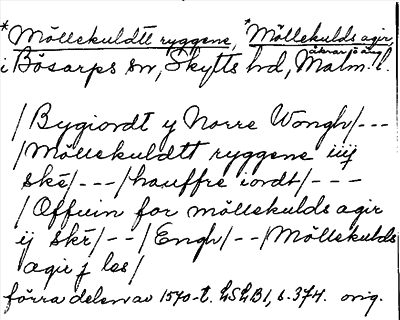 *Möllekuldtt ryggene, *Möllekulds agir,
åkrar o äng
i Bösarps sn, Skytts hd, Malm. l.
/Bygiordt y Norre Wongh/---
/Möllekuldtt ryggene iiij
ske/---/hauffre iordt/---
/Offuin for möllekulds agir
ij ske/--/Engh/--/Möllekulds
agir j les/
förra delen av 1570-t. LSLB1, s. 374. orig.